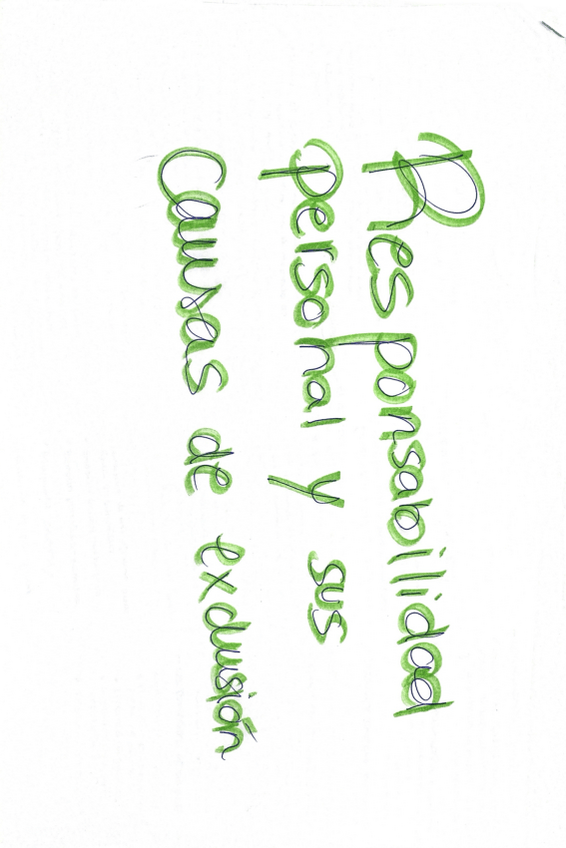 Responsabilidad
personal y sus
causas de exclusión